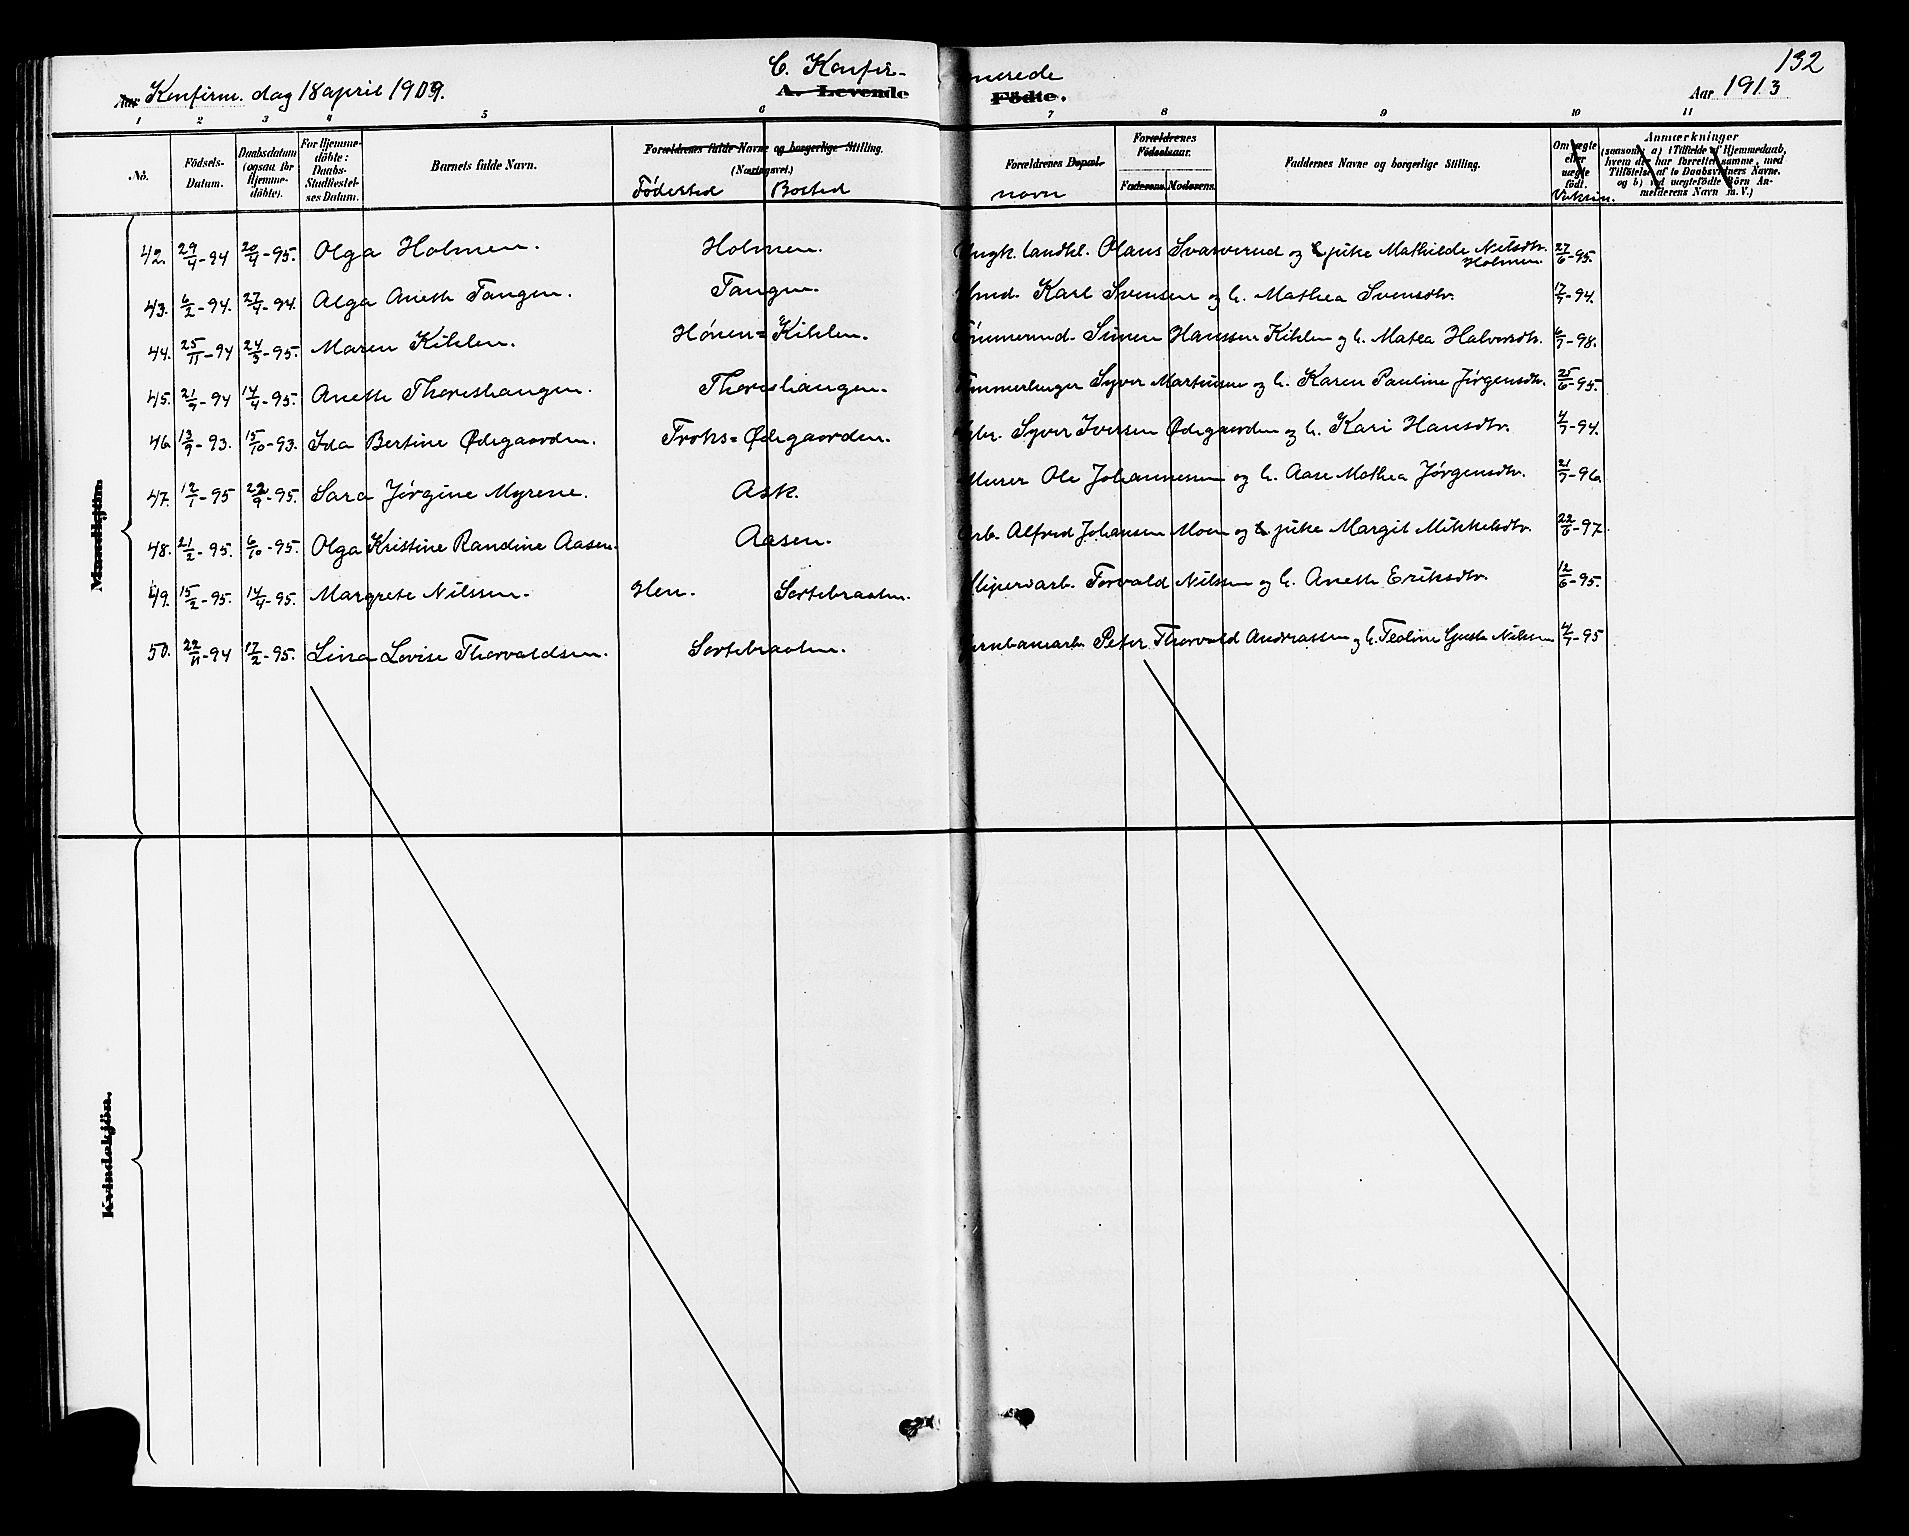 132
C. Konfirmerede
Konfirm. dag 18 april 1909.
A. Levende Fødte.
Aar 1913
1 2 3 4 5 6 7 8 9 10 11
No.
Fødsels-Datum.
Daabsdatum (ogsaa for Hjemmedøbte).
For Hjemmedøbte: Daabs-Stadfæstelses Datum.
Barnets fulde Navn.
Forældrenes fulde Navne og borgerlige Stilling. (Næringsvei.)
Födested Bosted
Forældrenes Bopæl.
navn
Forældrenes Födselsaar.
Faderens. Moderens.
Faddernes Navne og borgerlige Stilling.
Om ægte eller uægte født.
Vaksin.
Anmærkninger
(saasom: a) i Tilfælde af Hjemmedaab, hvem der har forrettet samme, med Tilføielse af to Daabsvidners Navne, og b) ved uægtefødte Børn Anmelderens Navn m. V.)
Mandkjøn
42. 29/4-94 20/4-95. Olga Holmen. Holmen. Ungk. landhl. Olaus Svarverud og pike Mathilde Nilsdtr. Holmen 27/6-95.
43. 6/2-94. 27/4-94. Alga Aneth Tangen. Tangen. Karl Svensen og h. Mathea Svensdtr. 17/7-94.
44. 25/11-94 24/3-95. Maren Kihlen. Hönen=Kihlen. Simen Hanssen Kihlen og h. Matea Halvorsdtr. 6/7-98.
45. 21/9-94 14/4-95. Aneth Thoreshaugen. Thoreshaugen. Tømmerhugger Syver Martinsen og h. Karen Pauline Jörgensdtr. 25/6-95.
46. 13/9-93. 15/10-93. Ida Bertine Ødegaarden. Troks=Ødegaarden. Syver Iversen Ødegaarden og h. Kari Hansdtr. 4/7-94.
47. 12/1-95 22/9-95. Sara Jörgine Myrene. Ask. Murer Ole Johannesen og h. Aase Mathea Jörgensdtr. 21/7-96.
48. 21/2-95. 6/10-95. Olga Kristine Randine Aasen. Aasen. Arb. Alfred Johansen Moen og pike Margit Mikkelsdtr. 22/6-97.
49. 15/2-95. 14/4-95. Margrete Nilssen. Hen. Sortebraaten. Sliperiarb. Torvald Nilssen og h. Aneth Eriksdtr. 12/6-95.
50. 22/11-94 17/2-95. Lina Lovise Thorvaldsen. Sortebraaten. Jernbanearb. Peter Thorvald Andreassen og h. Teoline Guste Nilssen 4/7-95
Kvindekjøn.